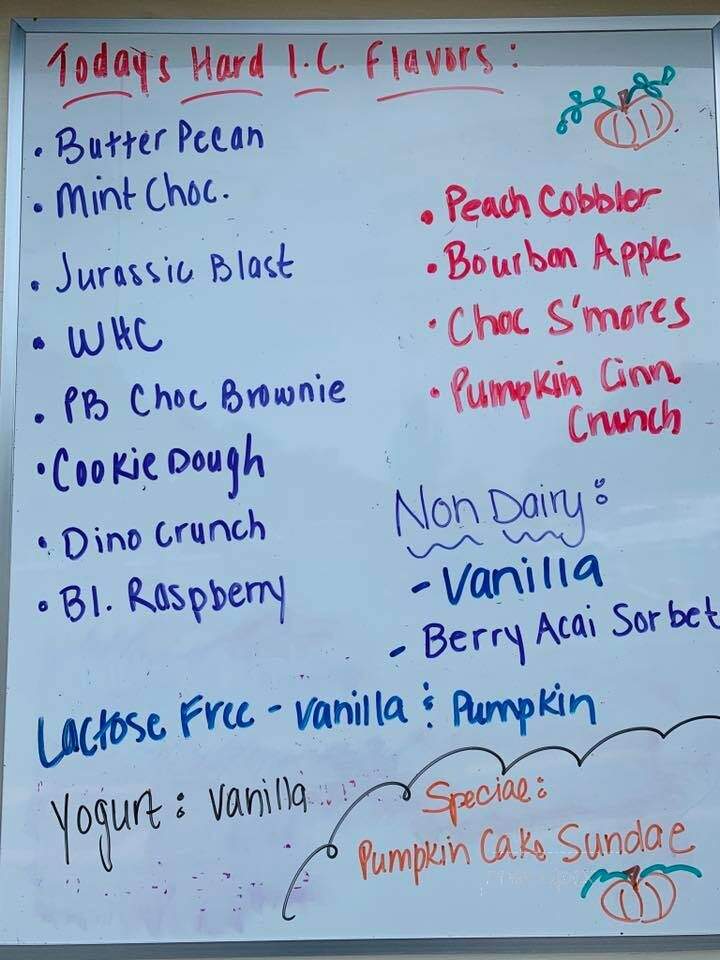 Today's Hard I.C. Flavors:
• Butter Pecan
• Mint Choc.
• Jurassic Blast
• WHC
• PB Choc Brownie
• Cookie Dough
• Dino Crunch
• Bl. Raspberry
• Peach Cobbler
• Bourbon Apple
• Choc S'mores
• Pumpkin Cinn
Crunch
Non Dairy:
- Vanilla
- Berry Acai Sorbet
Lactose Free - Vanilla & Pumpkin
Yogurt: Vanilla
Special:
Pumpkin Cake Sundae